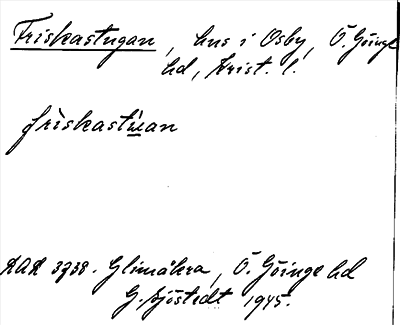 Friskastugan, hus i Osby, Ö. Göinge
hd, Krist. l.
frìskastúan
DAL 3738. Glimåkra, Ö. Göinge hd
G. Sjöstedt 1945.